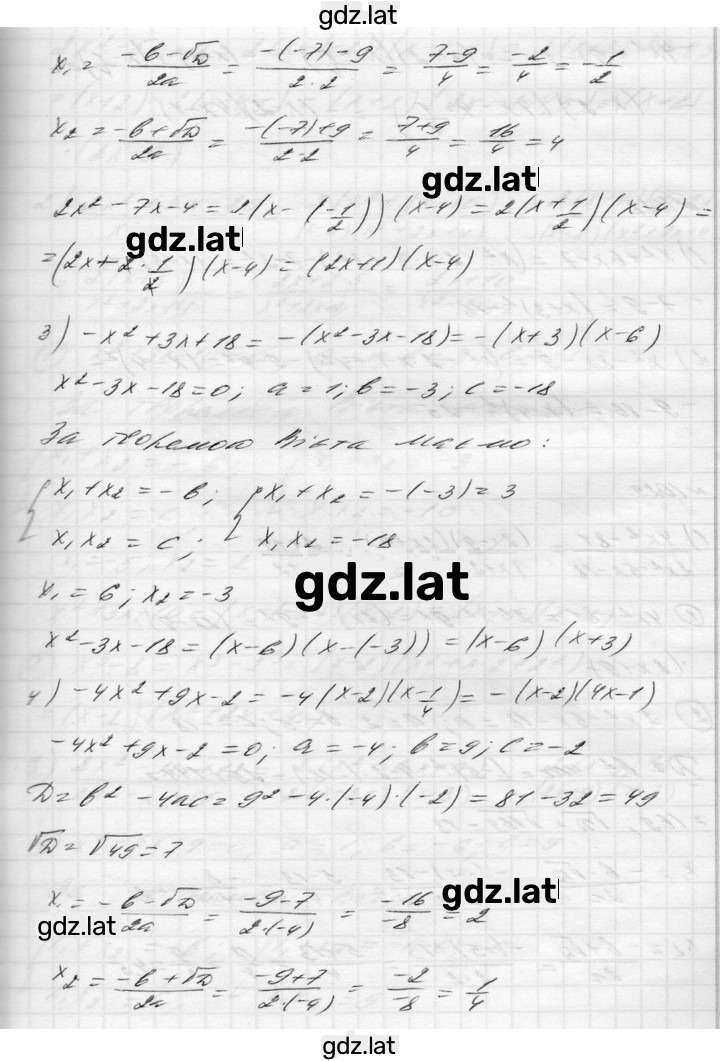 gdz.lat
x₁ = (-b-√D)/2a = (-(-7)-9)/(2·2) = (7-9)/4 = -2/4 = -1/2
x₂ = (-b+√D)/2a = (-(-7)+9)/(2·2) = (7+9)/4 = 16/4 = 4
gdz.lat
2x²-7x-4 = 2(x-(-1/2))(x-4) = 2(x+1/2)(x-4) =
gdz.lat
= (2x+2·1/2)(x-4) = (2x+1)(x-4)
3) -x²+3x+18 = -(x²-3x-18) = -(x+3)(x-6)
x²-3x-18=0; a=1; b=-3; c=-18
За теоремою Вієта маємо:
{ x₁+x₂ = -b; { x₁+x₂ = -(-3) = 3
x₁x₂ = c; x₁x₂ = -18
gdz.lat
x₁ = 6; x₂ = -3
x²-3x-18 = (x-6)(x-(-3)) = (x-6)(x+3)
4) -4x²+9x-2 = -4(x-2)(x-1/4) = -(x-2)(4x-1)
-4x²+9x-2=0; a=-4; b=9; c=-2
D = b²-4ac = 9²-4·(-4)·(-2) = 81-32 = 49
√D = √49 = 7
gdz.lat
x₁ = (-b-√D)/2a = (-9-7)/(2·(-4)) = -16/-8 = 2
gdz.lat
x₂ = (-b+√D)/2a = (-9+7)/(2·(-4)) = -2/-8 = 1/4
gdz.lat